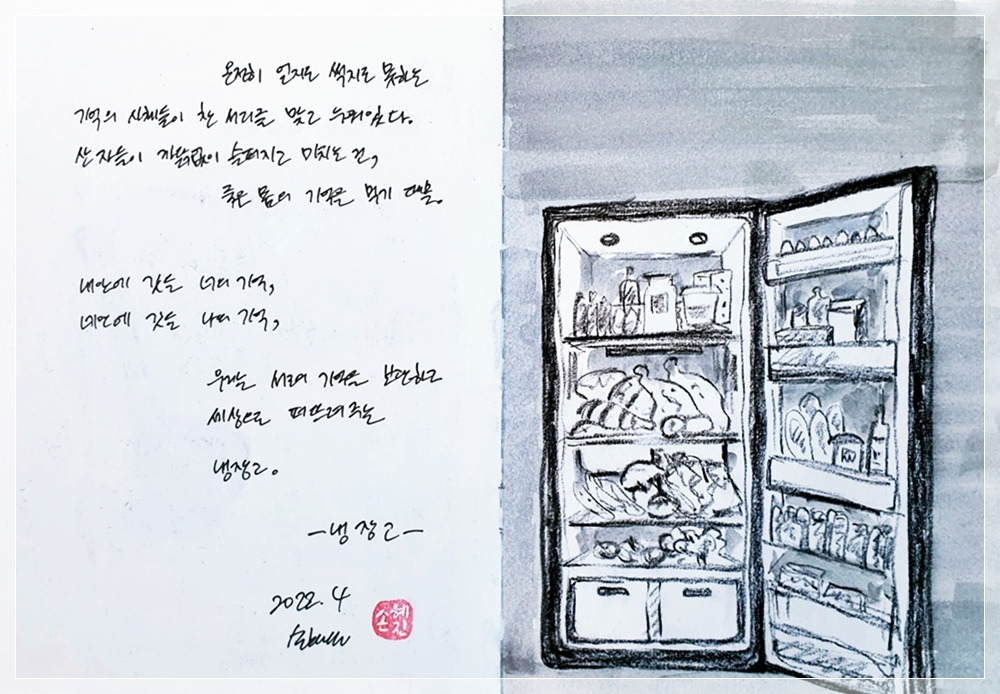 온전히 얼지도 썩지도 못하는
기억의 시체들이 찬 서리를 맞고 누워있다.
산 자들이 까닭없이 슬퍼지고 미치는 건,
죽은 몸의 기억을 먹기 때문.
내안에 갇힌 너의 기억,
네안에 갇힌 나의 기억,
우리는 서로의 기억을 보관하고
세상으로 떠뜨려주는
냉장고.
-냉장고-
2022. 4
손혜진